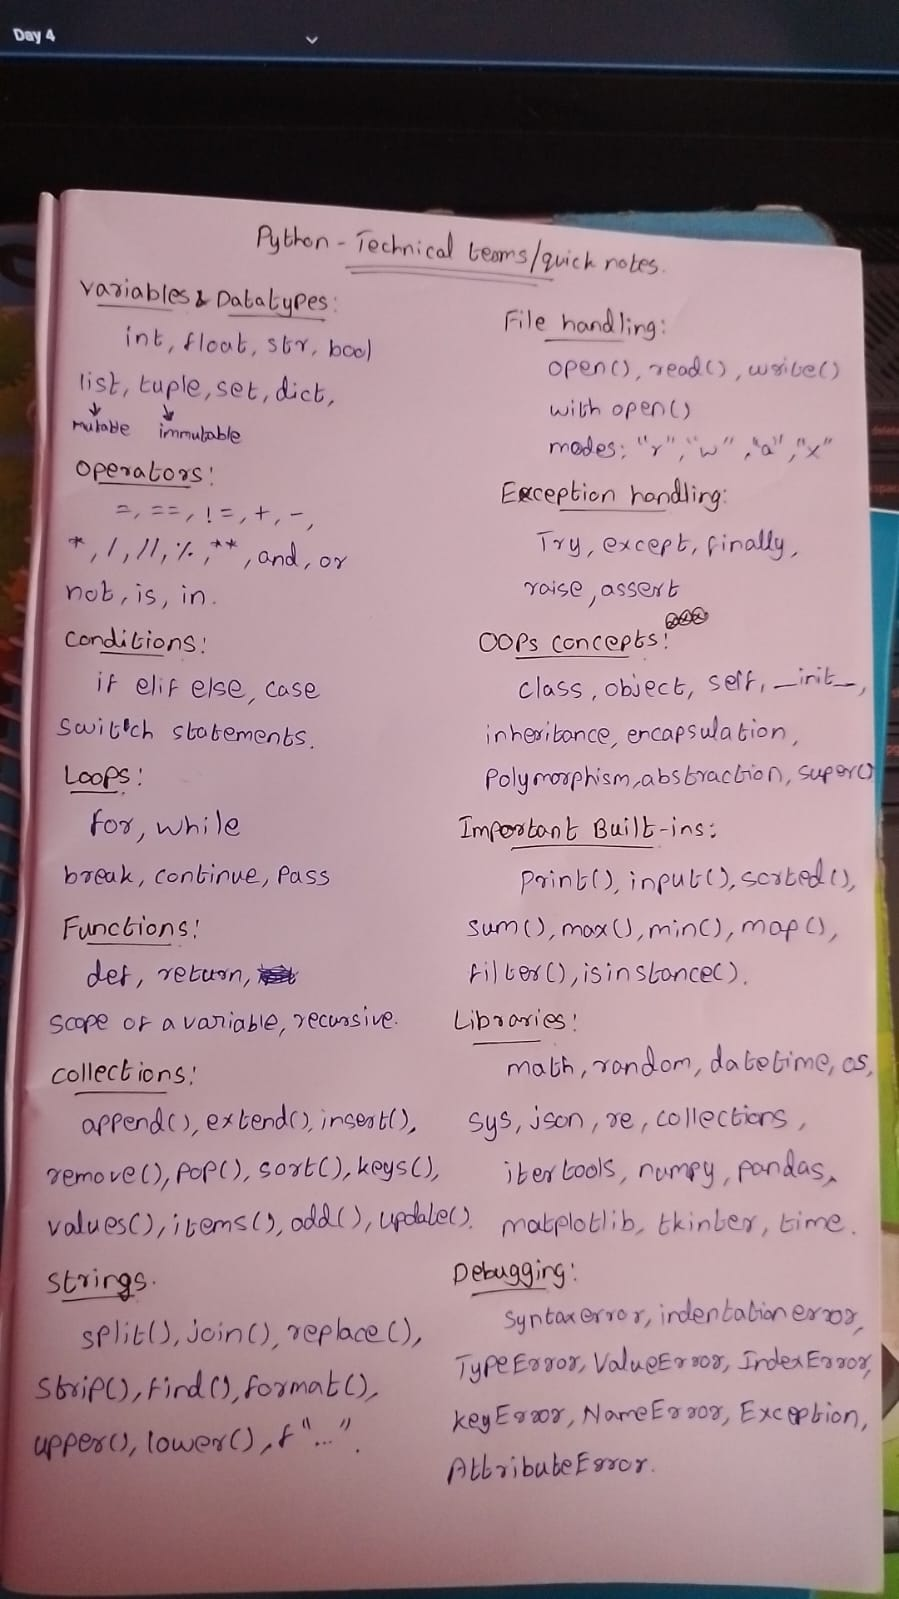 Day 4
Python - Technical terms/quick notes.
Variables & Datatypes:
int, float, str, bool
list, tuple, set, dict,
mutable immutable
Operators:
=, ==, !=, +, -,
*, /, //, %, **, and, or
not, is, in.
Conditions:
if elif else, case
Switch statements.
Loops:
for, while
break, continue, Pass
Functions:
def, return,
scope of a variable, recursive.
Collections:
append(), extend(), insert(),
remove(), pop(), sort(), keys(),
values(), items(), add(), update().
Strings.
split(), join(), replace(),
strip(), find(), format(),
upper(), lower(), f"...".
File handling:
open(), read(), write()
with open()
modes: "r", "w", "a", "x"
Exception handling:
Try, except, finally,
raise, assert
OOPs concepts:
class, object, self, _init_,
inheritance, encapsulation,
Polymorphism, abstraction, super()
Important Built-ins:
print(), input(), sorted(),
sum(), max(), min(), map(),
filter(), isinstance().
Libraries:
math, random, datetime, os,
sys, json, re, collections,
itertools, numpy, pandas,
matplotlib, tkinter, time.
Debugging:
Syntaxerror, indentationerror,
TypeError, ValueError, IndexError,
keyError, NameError, Exception,
AttributeError.